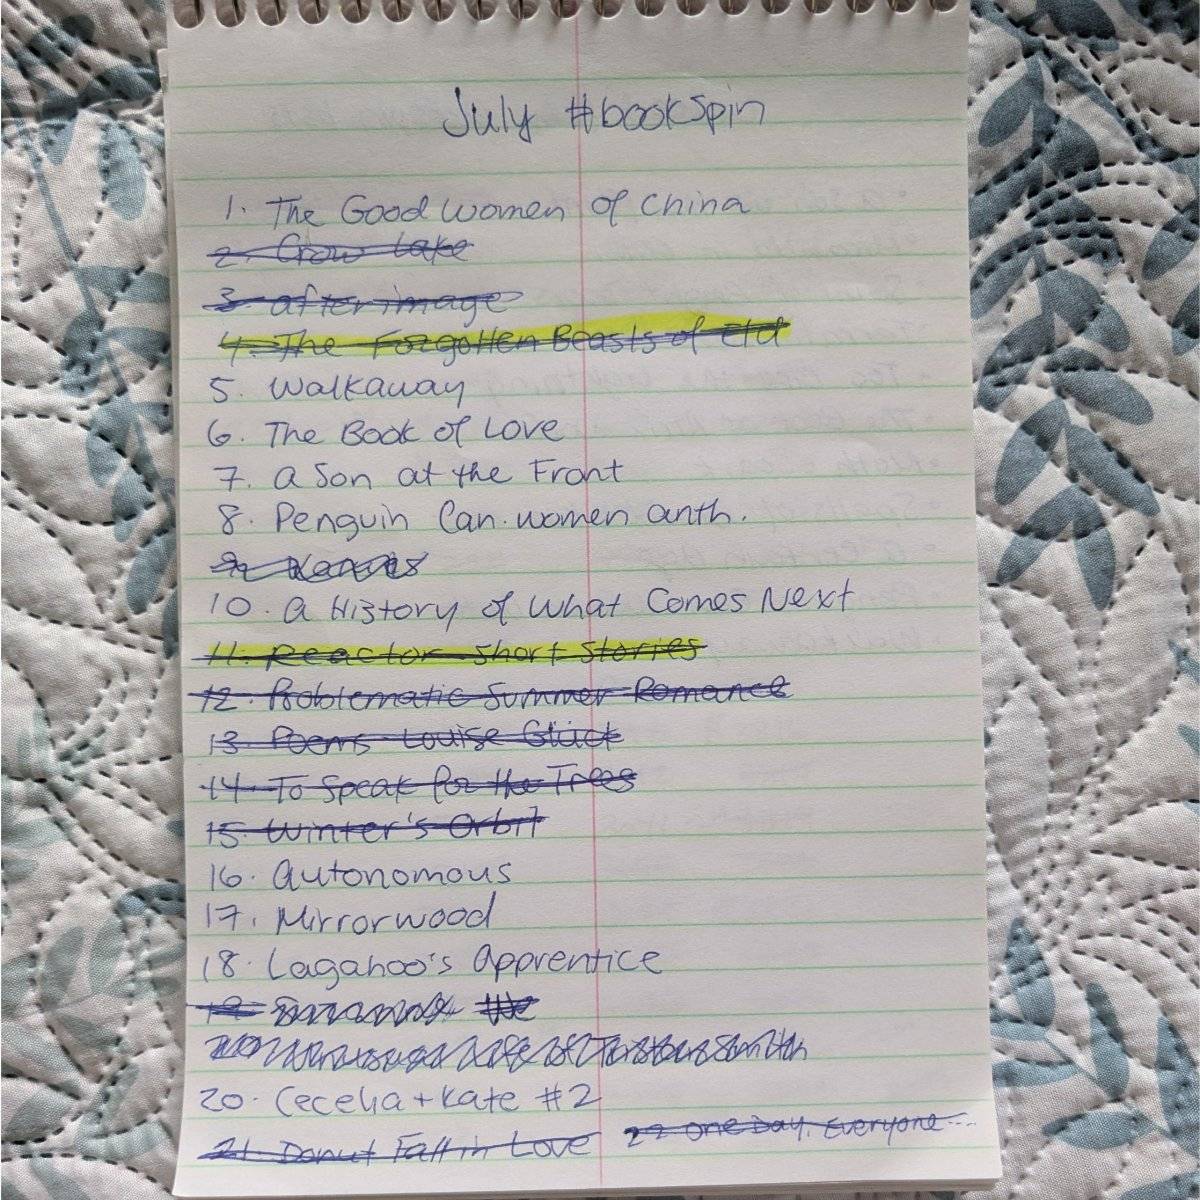 July #bookspin
1. The Good Women of China
2. Crow Lake
3. afterimage
4. The Forgotten Beasts of Eld
5. Walkaway
6. The Book of Love
7. a Son at the Front
8. Penguin Can. women anth.
9.
10. a History of What Comes Next
11. Reactor Short Stories
12. Problematic Summer Romance
13. Poems Louise Glück
14. To Speak for the Trees
15. Winter's Orbit
16. Autonomous
17. Mirrorwood
18. Lagahoo's Apprentice
19.
Life of
20. Cecelia + Kate #2
21. Donut Fall in Love 22 One Day, Everyone....